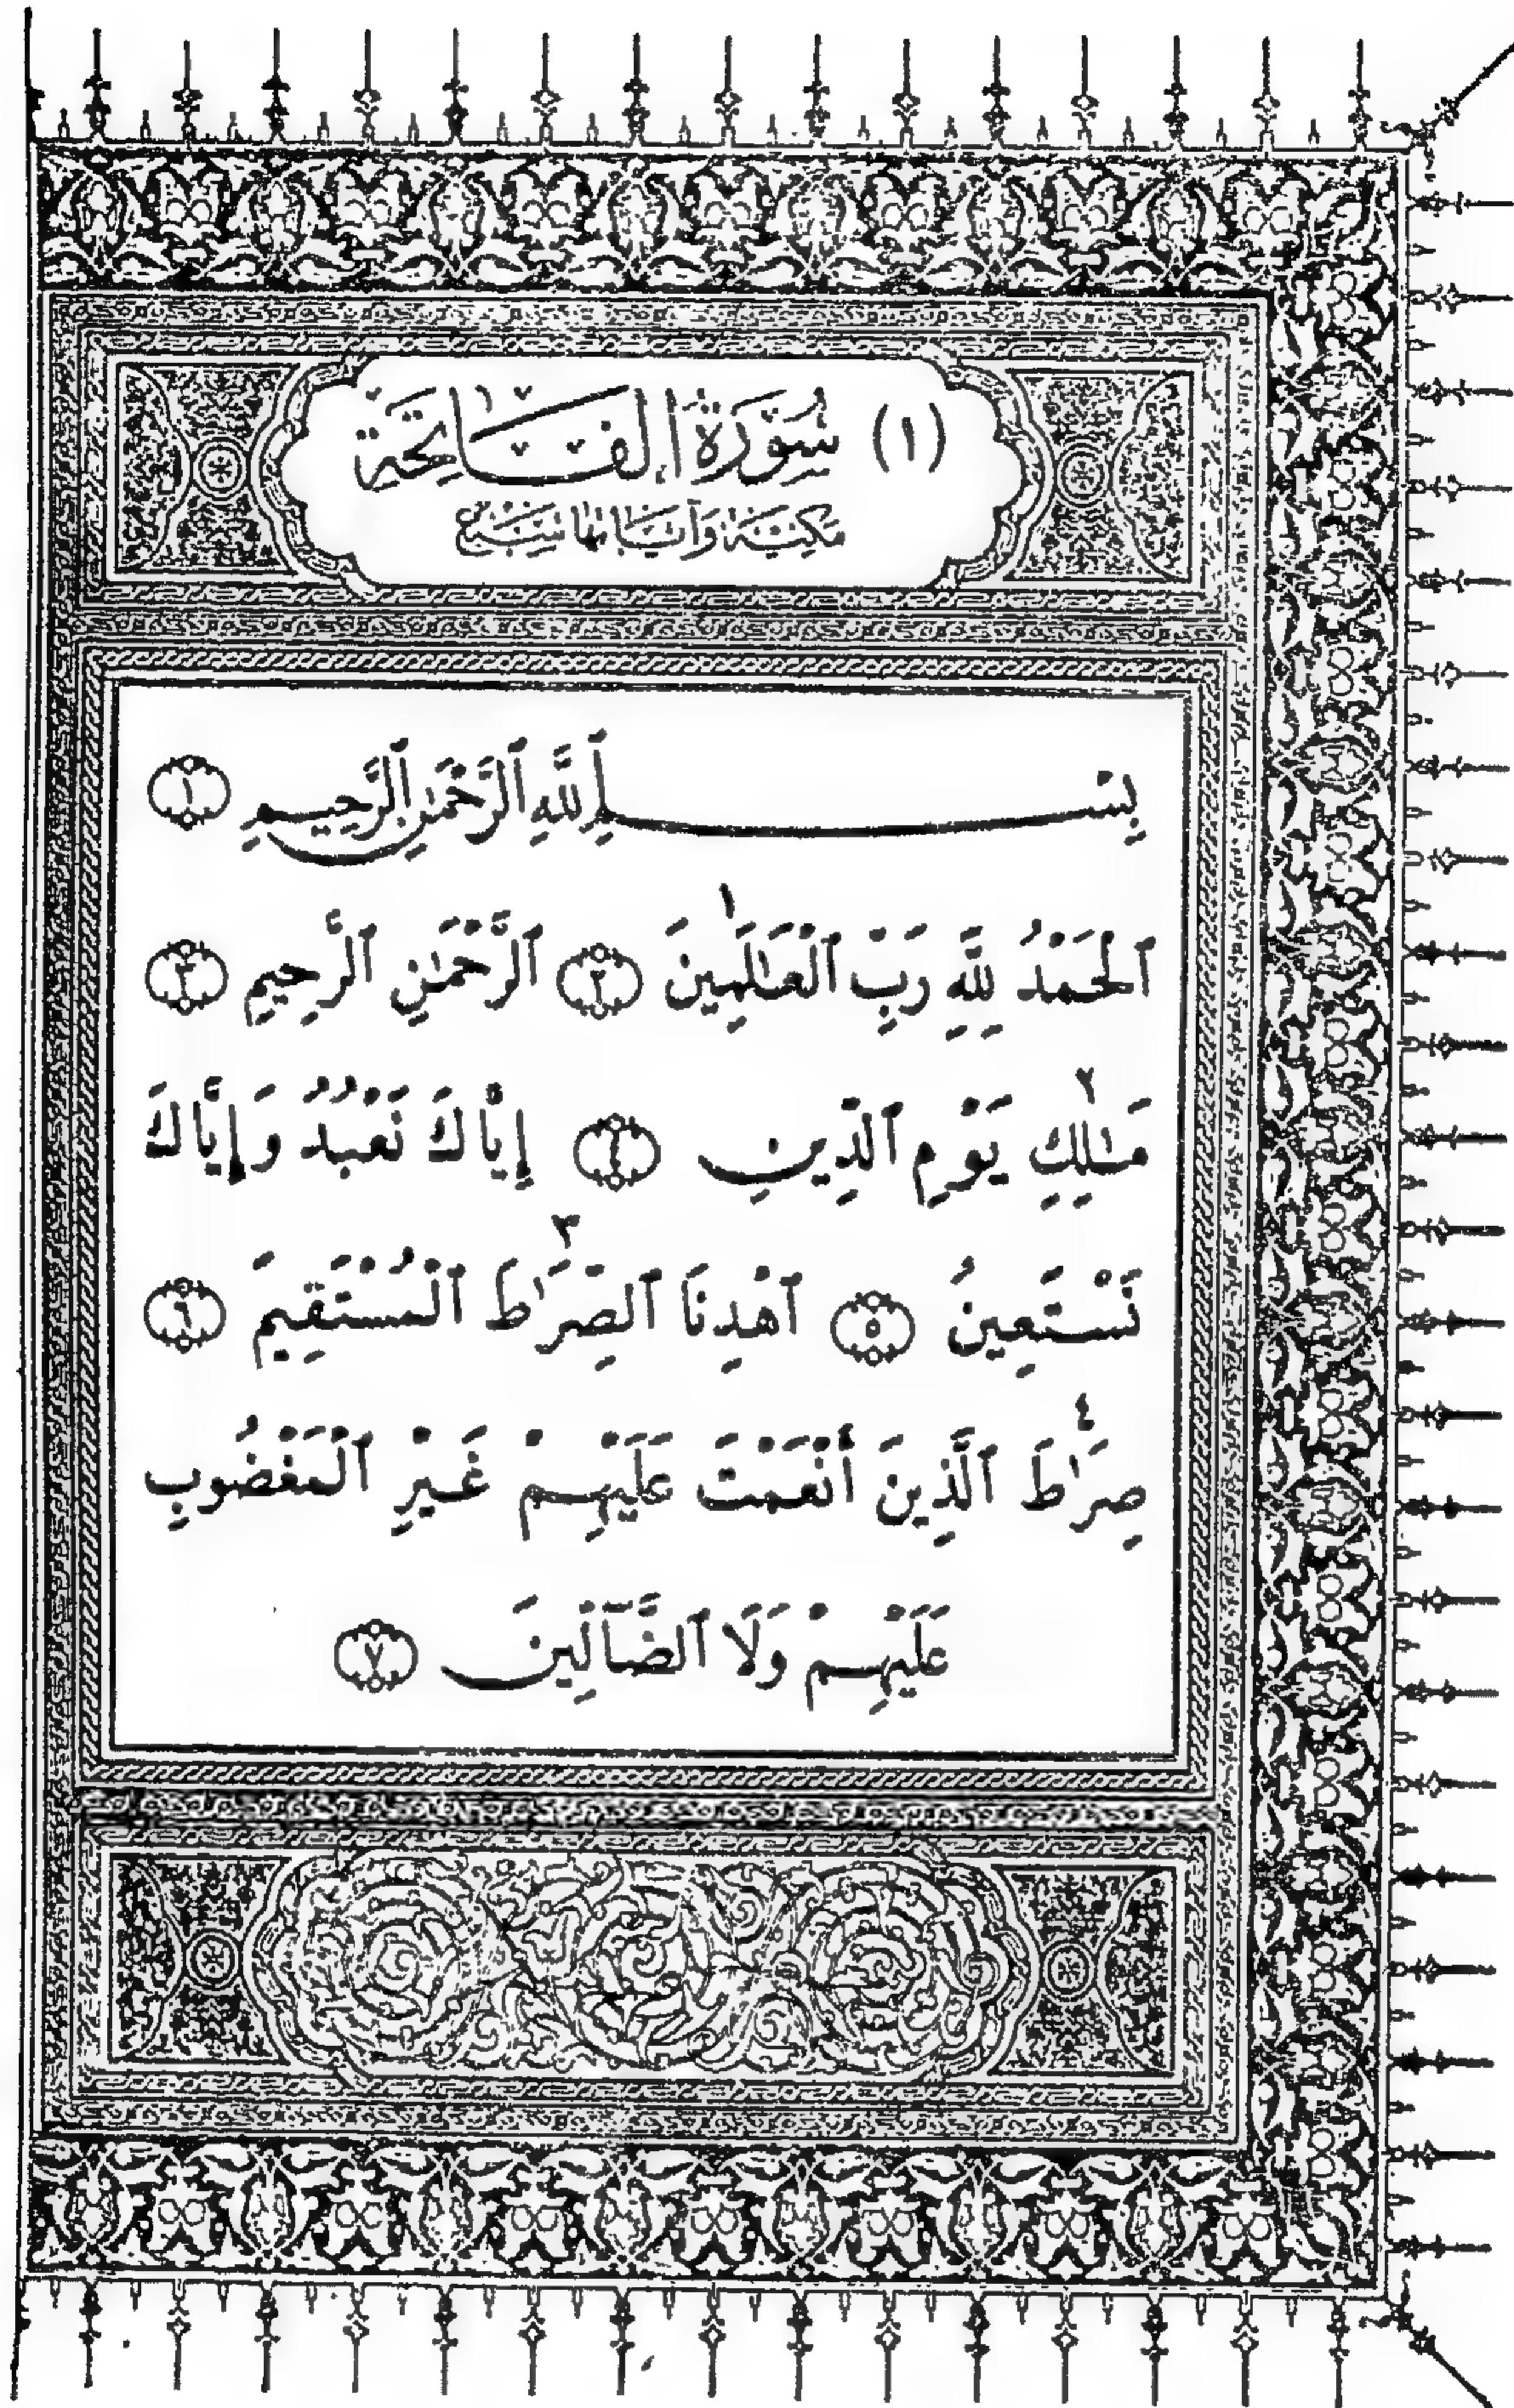 (١) سُورَةُ الفَاتِحَة
مَكِيَّة وَآيَاتُهَا سَبْعٌ
بِسْمِ ٱللَّهِ ٱلرَّحْمَٰنِ ٱلرَّحِيمِ ١
ٱلْحَمْدُ لِلَّهِ رَبِّ ٱلْعَٰلَمِينَ ١ ٢ ٱلرَّحْمَٰنِ ٱلرَّحِيمِ ٣
مَٰلِكِ ٢ يَوْمِ ٱلدِّينِ ٤ إِيَّاكَ نَعْبُدُ وَإِيَّاكَ
نَسْتَعِينُ ٥ ٱهْدِنَا ٱلصِّرَٰطَ ٣ ٱلْمُسْتَقِيمَ ٦
صِرَٰطَ ٤ ٱلَّذِينَ أَنْعَمْتَ عَلَيْهِمْ غَيْرِ ٱلْمَغْضُوبِ
عَلَيْهِمْ وَلَا ٱلضَّآلِّينَ ٧